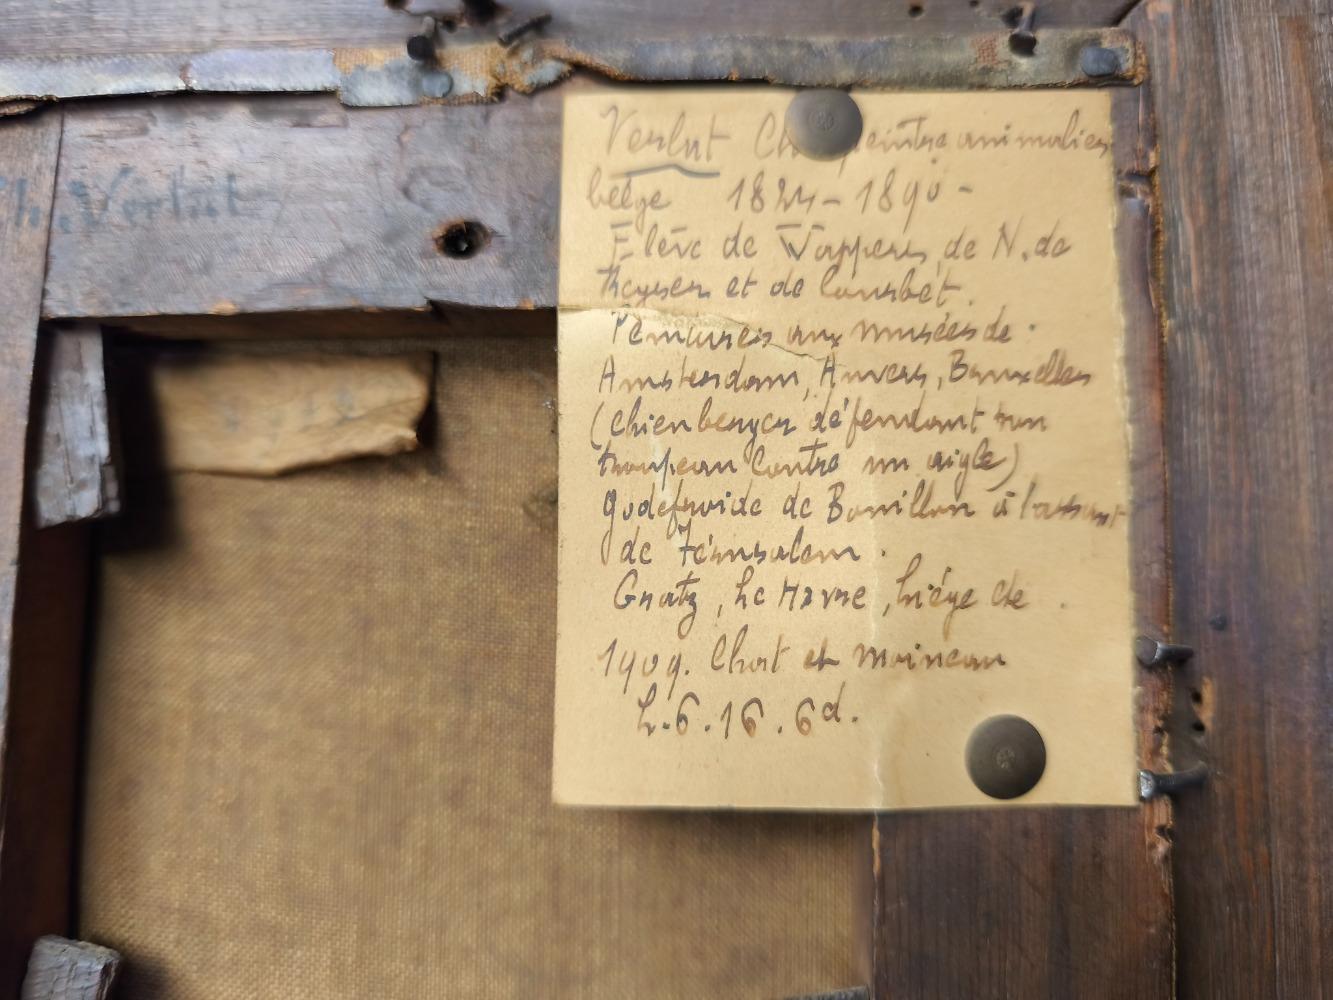 Ch. Verlat
Verlat Ch. peintre animalier
belge 1824-1890-
Elève de Wappers, de N. de
Keyser et de Courbet.
Peintures aux musées de
Amsterdam, Anvers, Bruxelles
(chien berger défendant son
troupeau contre un aigle)
Godefroide de Bouillon à l'assaut
de Jérusalem.
Gratz, Le Havre, Liége de
1909. Chat et moineau
L.6.16.6d.